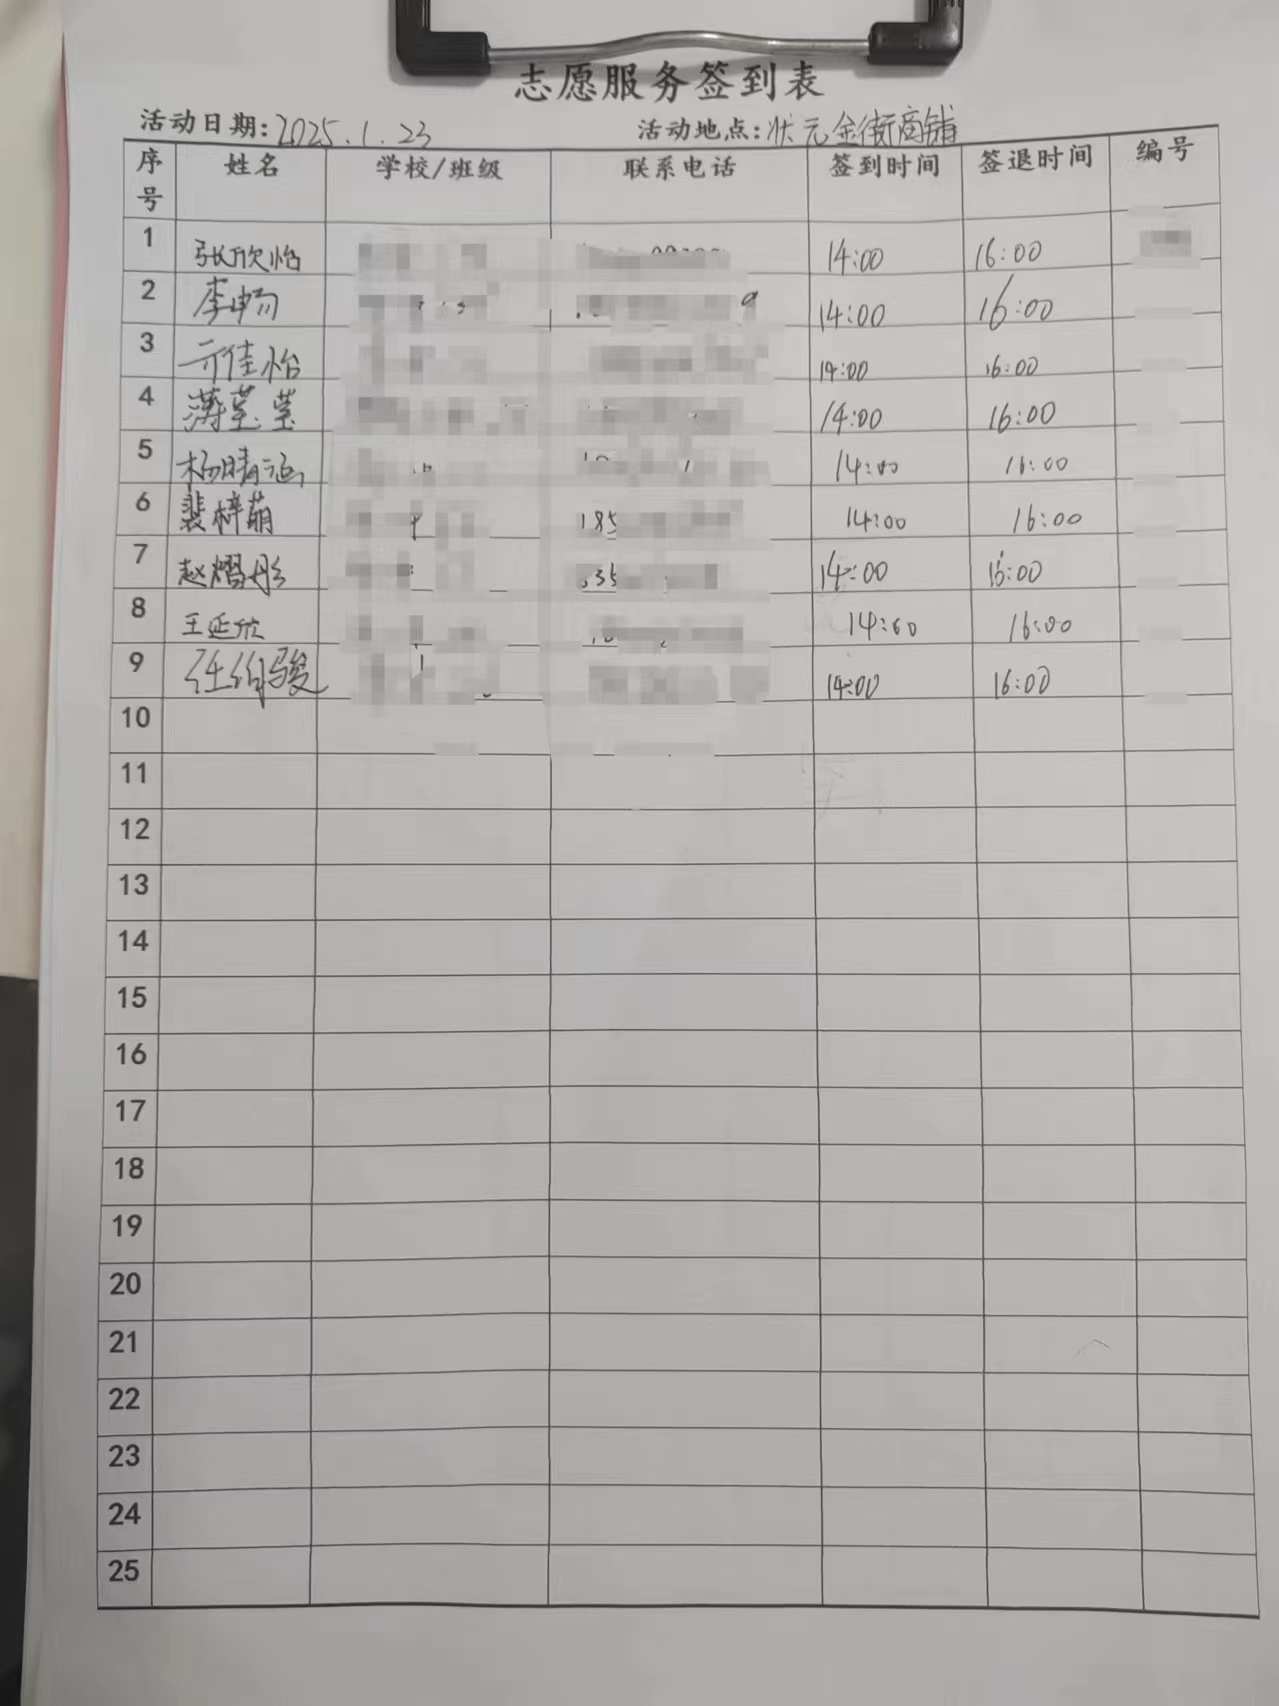 志愿服务签到表
活动日期:2025.1.23 活动地点:状元金街商铺
序号 姓名 学校/班级 联系电话 签到时间 签退时间 编号
1 张欣怡 14:00 16:00
2 李畅 14:00 16:00
3 亓佳怡 14:00 16:00
4 薄莹莹 14:00 16:00
5 杨晴涵 14:00 16:00
6 裴梓萌 185 14:00 16:00
7 赵熠彤 35 14:00 16:00
8 王延欣 14:00 16:00
9 任伯骏 14:00 16:00
10
11
12
13
14
15
16
17
18
19
20
21
22
23
24
25